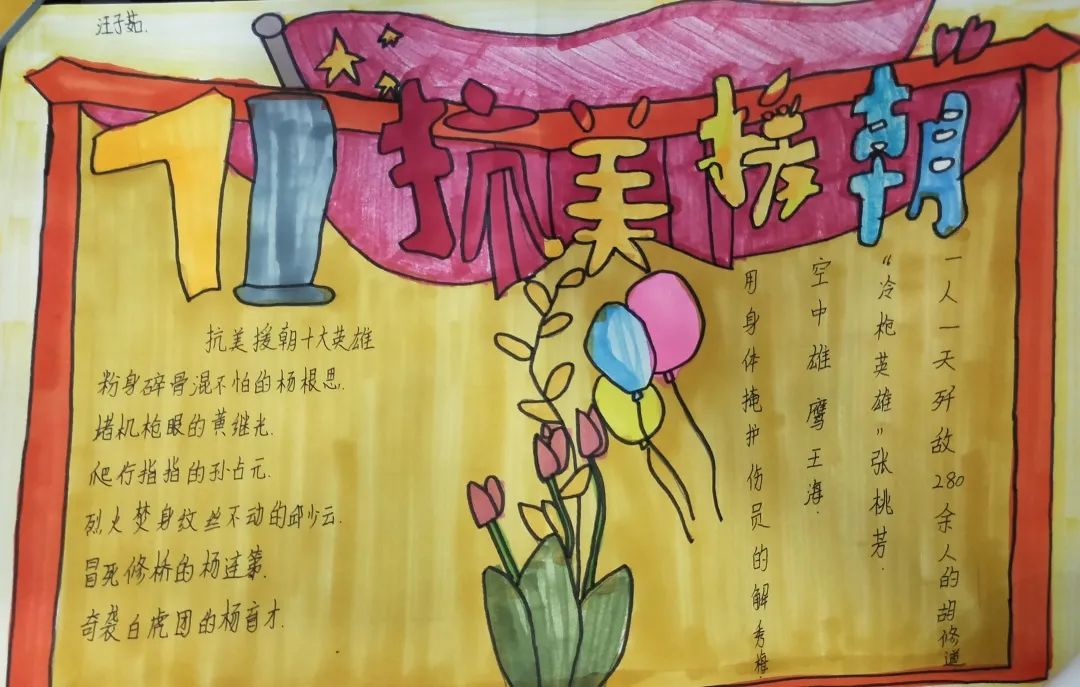 汪子茹.
71抗美援朝
抗美援朝十大英雄
粉身碎骨混不怕的杨根思.
堵机枪眼的黄继光.
爬行指指的孙占元.
烈火焚身纹丝不动的邱少云.
冒死修桥的杨连第.
奇袭白虎团的杨育才.
一人一天歼敌280余人的胡修道
“冷枪英雄”张桃芳.
空中雄鹰王海.
用身体掩护伤员的解秀梅.